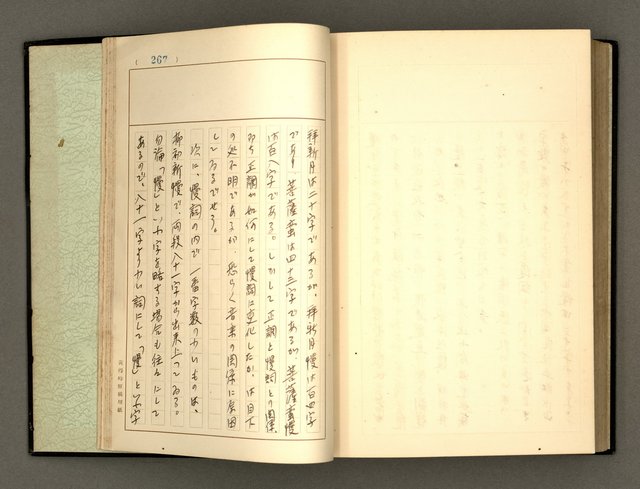 ( 267 )
拜新月は二十字であるが、拜新月慢は百四字
であり 菩薩蛮は四十三字であるが、菩薩蛮慢
は百八字である。しかして正調と慢詞との関係
即ち正調が如何にして慢詞に変化したか、は目下
の処不明であるが、恐らく音楽の関係に原因
してゐるでせう。
次に、慢詞の内で 一番字数の少いものは、
柳初新慢で、両段八十一字から出来上つてゐる。
勿論「慢」といふ字を略する場合も往々にして
あるので、八十一字より少い詞にして「慢」といふ字
黄得時原稿用紙